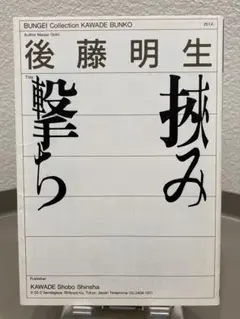 BUNGEI Collection KAWADE BUNKO
Author
後藤明生
Title
挾み
撃ち
Publisher
KAWADE Shobo Shinsha